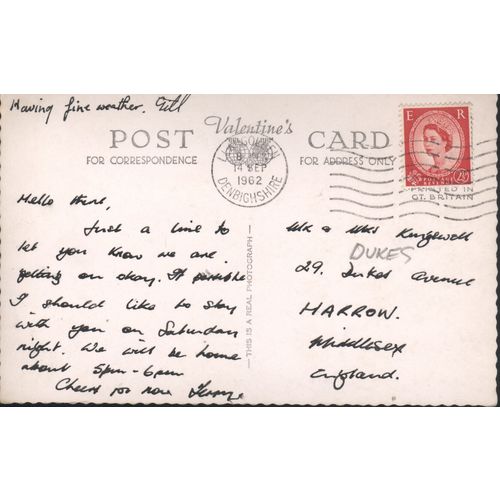 Having fine weather.
Valentine's
POST CARD
FOR CORRESPONDENCE
FOR ADDRESS ONLY
E R
POSTAGE
REVENUE
14 SEP
1962
DENBIGHSHIRE
PRINTED IN
GT. BRITAIN
Hello
Just a line to
let you know we are
getting on okay. If possible
I should like to stay
with you on Saturday
night. We will be home
about 5pm - 6pm
Cheers for now
THIS IS A REAL PHOTOGRAPH
Mr & Mrs
DUKES
29, Dukes Avenue
HARROW.
Middlesex
England.